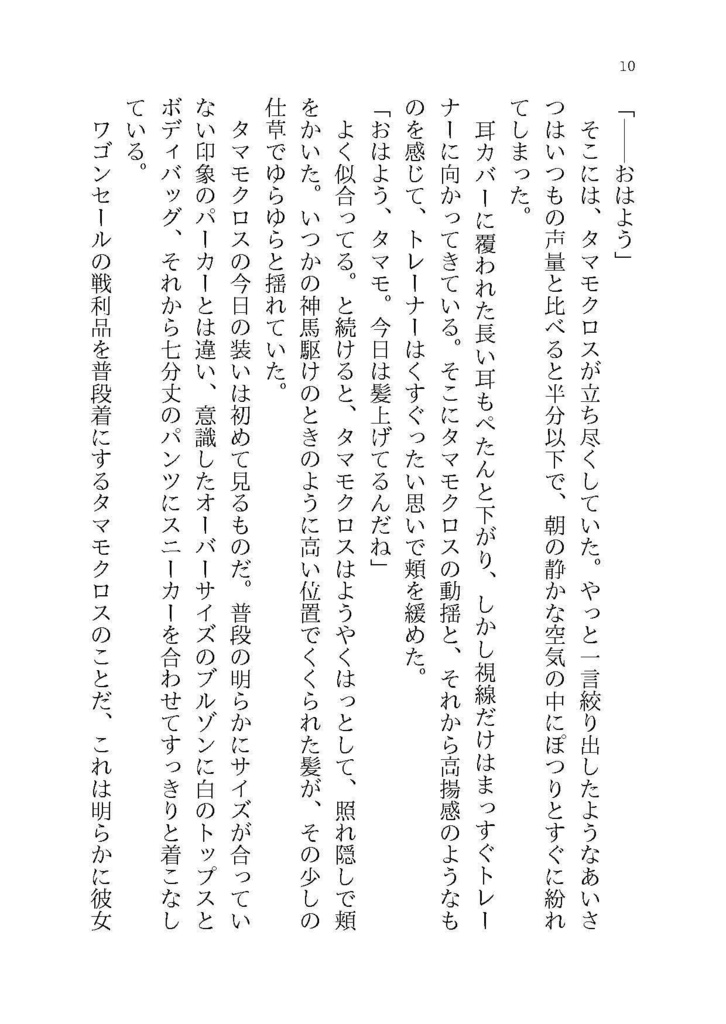 10
「――おはよう」
　そこには、タマモクロスが立ち尽くしていた。やっと一言絞り出したようなあいさ
つはいつもの声量と比べると半分以下で、朝の静かな空気の中にぽつりとすぐに紛れ
てしまった。
　耳カバーに覆われた長い耳もぺたんと下がり、しかし視線だけはまっすぐトレー
ナーに向かってきている。そこにタマモクロスの動揺と、それから高揚感のようなも
のを感じて、トレーナーはくすぐったい思いで頬を緩めた。
「おはよう、タマモ。今日は髪上げてるんだね」
　よく似合ってる。と続けると、タマモクロスはようやくはっとして、照れ隠しで頬
をかいた。いつかの神馬駆けのときのように高い位置でくくられた髪が、その少しの
仕草でゆらゆらと揺れていた。
　タマモクロスの今日の装いは初めて見るものだ。普段の明らかにサイズが合ってい
ない印象のパーカーとは違い、意識したオーバーサイズのブルゾンに白のトップスと
ボディバッグ、それから七分丈のパンツにスニーカーを合わせてすっきりと着こなし
ている。
　ワゴンセールの戦利品を普段着にするタマモクロスのことだ、これは明らかに彼女